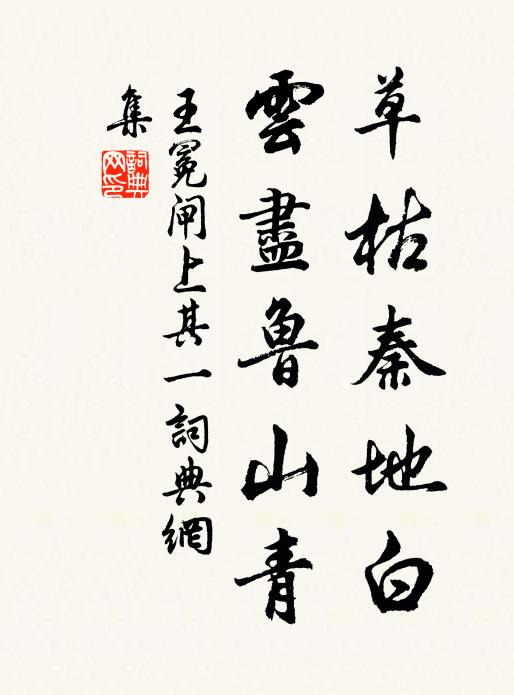 草枯秦地白
雲盡魯山青
王冕闸上其一詞典網
集
詞典網印